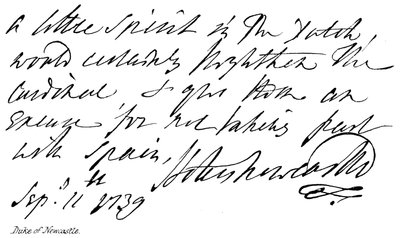 a little Spirit in The Dutch,
would certainly frighten The
Cardinal, & give them an
Excuse, for not taking part
with Spain,
Holles Newcastle
Sep.r 11th 1739
Duke of Newcastle.